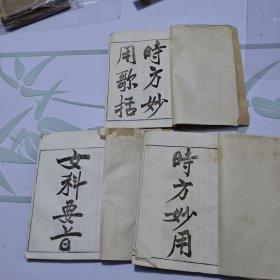 時方妙
用歌括
時方妙用
女科要旨